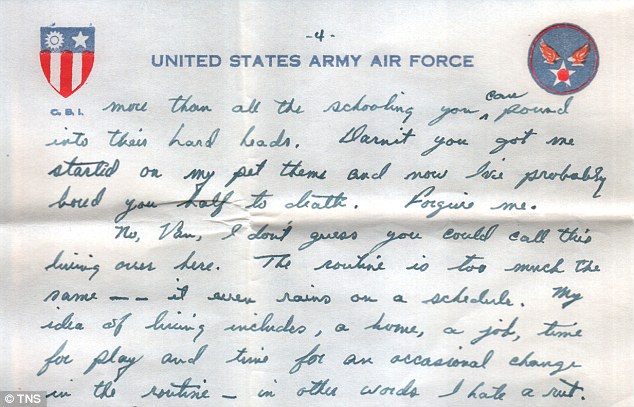 -4-
UNITED STATES ARMY AIR FORCE
C.B.I.
more than all the schooling you can pound
into their hard heads. Darnit you got me
started on my pet theme and now I've probably
bored you half to death. Forgive me.
No, Van, I don't guess you could call this
living over here. The routine is too much the
same -- it even rains on a schedule. My
idea of living includes, a home, a job, time
for play and time for an occasional change
in the routine - in other words I hate a rut.
© TNS